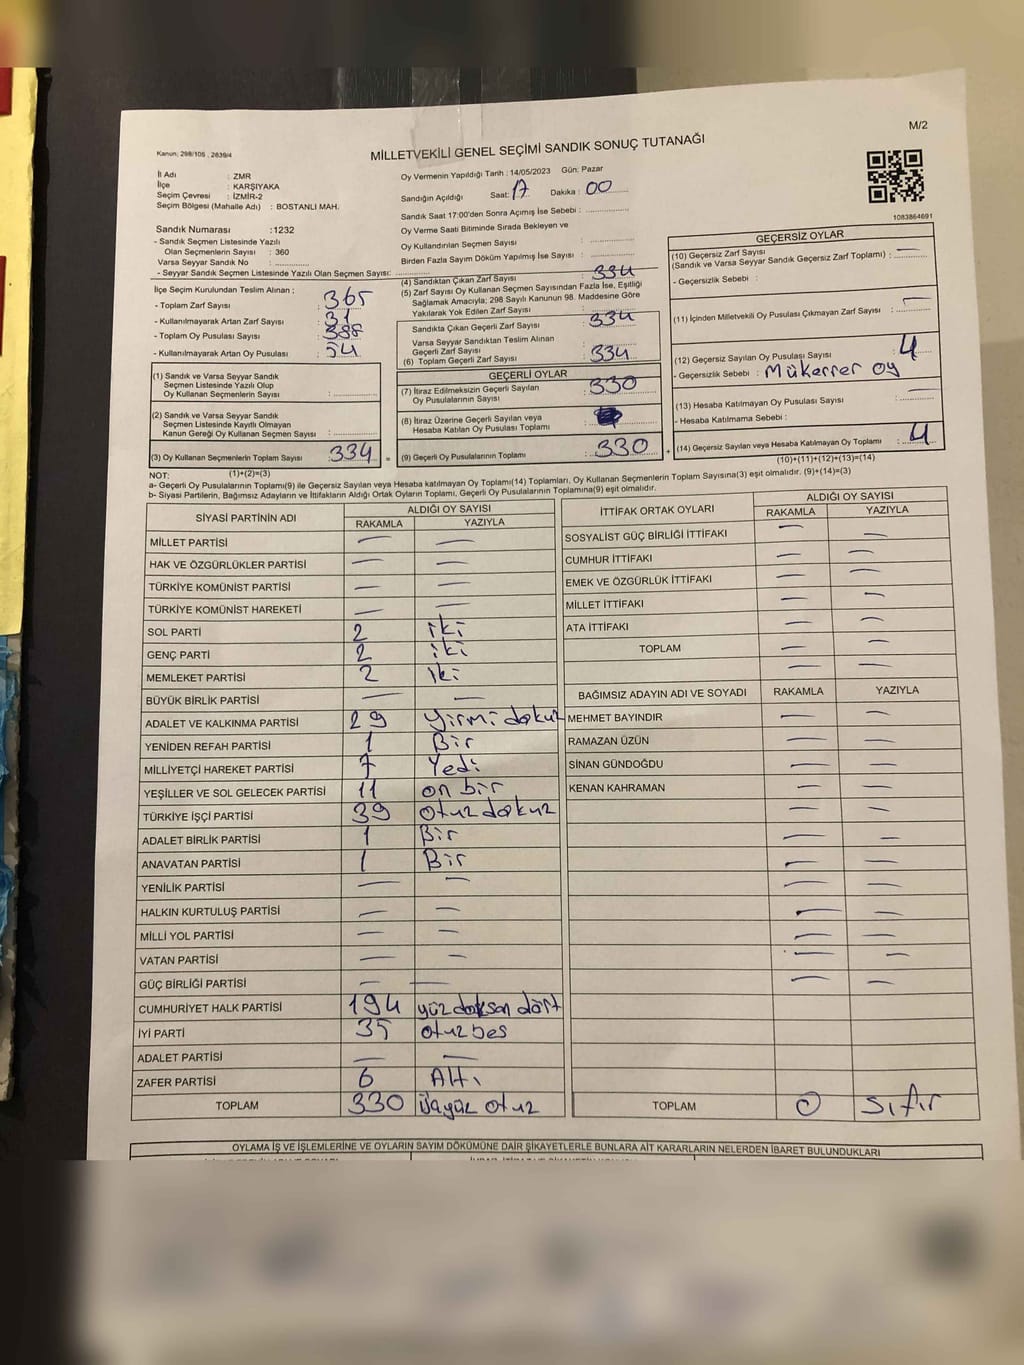 M/2
Kanun; 298/105 , 2839/4
MİLLETVEKİLİ GENEL SEÇİMİ SANDIK SONUÇ TUTANAĞI
İl Adı : ZMR
İlçe : KARŞIYAKA
Seçim Çevresi : İZMİR-2
Seçim Bölgesi (Mahalle Adı) : BOSTANLI MAH.
Sandık Numarası :1232
- Sandık Seçmen Listesinde Yazılı
Olan Seçmenlerin Sayısı : 360
Varsa Seyyar Sandık No :
- Seyyar Sandık Seçmen Listesinde Yazılı Olan Seçmen Sayısı:
Oy Vermenin Yapıldığı Tarih : 14/05/2023 Gün: Pazar
Sandığın Açıldığı Saat: 17 Dakika : 00
Sandık Saat 17:00'den Sonra Açımış İse Sebebi :
Oy Verme Saati Bitiminde Sırada Bekleyen ve
Oy Kullandırılan Seçmen Sayısı :
Birden Fazla Sayım Döküm Yapılmış İse Sayısı :
1083864691
İlçe Seçim Kurulundan Teslim Alınan ;
- Toplam Zarf Sayısı : 365
- Kullanılmayarak Artan Zarf Sayısı : 31
- Toplam Oy Pusulası Sayısı : 388
- Kullanılmayarak Artan Oy Pusulası : 54
(1) Sandık ve Varsa Seyyar Sandık
Seçmen Listesinde Yazılı Olup
Oy Kullanan Seçmenlerin Sayısı :
(2) Sandık ve Varsa Seyyar Sandık
Seçmen Listesinde Kayıtlı Olmayan
Kanun Gereği Oy Kullanan Seçmen Sayısı :
(3) Oy Kullanan Seçmenlerin Toplam Sayısı :334 =
(1)+(2)=(3)
(4) Sandıktan Çıkan Zarf Sayısı : 334
(5) Zarf Sayısı Oy Kullanan Seçmen Sayısından Fazla İse, Eşitliği
Sağlamak Amacıyla; 298 Sayılı Kanunun 98. Maddesine Göre
Yakılarak Yok Edilen Zarf Sayısı :
Sandıkta Çıkan Geçerli Zarf Sayısı : 334
Varsa Seyyar Sandıktan Teslim Alınan
Geçerli Zarf Sayısı :
(6) Toplam Geçerli Zarf Sayısı : 334
GEÇERLİ OYLAR
(7) İtiraz Edilmeksizin Geçerli Sayılan
Oy Pusulalarının Sayısı : 330
(8) İtiraz Üzerine Geçerli Sayılan veya
Hesaba Katılan Oy Pusulası Toplamı :
(9) Geçerli Oy Pusulalarının Toplamı : 330 +
GEÇERSİZ OYLAR
(10) Geçersiz Zarf Sayısı
(Sandık ve Varsa Seyyar Sandık Geçersiz Zarf Toplamı) : —
- Geçersizlik Sebebi :
(11) İçinden Milletvekili Oy Pusulası Çıkmayan Zarf Sayısı : —
(12) Geçersiz Sayılan Oy Pusulası Sayısı : 4
- Geçersizlik Sebebi : Mükerrer oy
(13) Hesaba Katılmayan Oy Pusulası Sayısı : —
- Hesaba Katılmama Sebebi :
(14) Geçersiz Sayılan veya Hesaba Katılmayan Oy Toplamı : 4
(10)+(11)+(12)+(13)=(14)
NOT:
a- Geçerli Oy Pusulalarının Toplamı(9) ile Geçersiz Sayılan veya Hesaba katılmayan Oy Toplamı(14) Toplamları, Oy Kullanan Seçmenlerin Toplam Sayısına(3) eşit olmalıdır. (9)+(14)=(3)
b- Siyasi Partilerin, Bağımsız Adayların ve İttifakların Aldığı Ortak Oyların Toplamı, Geçerli Oy Pusulalarının Toplamına(9) eşit olmalıdır.
SİYASİ PARTİNİN ADI ALDIĞI OY SAYISI
RAKAMLA YAZIYLA
MİLLET PARTİSİ — —
HAK VE ÖZGÜRLÜKLER PARTİSİ — —
TÜRKİYE KOMÜNİST PARTİSİ — —
TÜRKİYE KOMÜNİST HAREKETİ — —
SOL PARTİ 2 iki
GENÇ PARTİ 2 iki
MEMLEKET PARTİSİ 2 iki
BÜYÜK BİRLİK PARTİSİ — —
ADALET VE KALKINMA PARTİSİ 29 yirmi dokuz
YENİDEN REFAH PARTİSİ 1 Bir
MİLLİYETÇİ HAREKET PARTİSİ 7 Yedi
YEŞİLLER VE SOL GELECEK PARTİSİ 11 on bir
TÜRKİYE İŞÇİ PARTİSİ 39 otuz dokuz
ADALET BİRLİK PARTİSİ 1 Bir
ANAVATAN PARTİSİ 1 Bir
YENİLİK PARTİSİ — —
HALKIN KURTULUŞ PARTİSİ — —
MİLLİ YOL PARTİSİ — —
VATAN PARTİSİ — —
GÜÇ BİRLİĞİ PARTİSİ — —
CUMHURİYET HALK PARTİSİ 194 yüz doksan dört
İYİ PARTİ 35 otuz bes
ADALET PARTİSİ — —
ZAFER PARTİSİ 6 Altı
TOPLAM 330 üçyüz otuz
İTTİFAK ORTAK OYLARI ALDIĞI OY SAYISI
RAKAMLA YAZIYLA
SOSYALİST GÜÇ BİRLİĞİ İTTİFAKI — —
CUMHUR İTTİFAKI — —
EMEK VE ÖZGÜRLÜK İTTİFAKI — —
MİLLET İTTİFAKI — —
ATA İTTİFAKI — —
TOPLAM — —
BAĞIMSIZ ADAYIN ADI VE SOYADI RAKAMLA YAZIYLA
MEHMET BAYINDIR — —
RAMAZAN ÜZÜN — —
SİNAN GÜNDOĞDU — —
KENAN KAHRAMAN — —
TOPLAM 0 sıfır
OYLAMA İŞ VE İŞLEMLERİNE VE OYLARIN SAYIM DÖKÜMÜNE DAİR ŞİKAYETLERLE BUNLARA AİT KARARLARIN NELERDEN İBARET BULUNDUKLARI